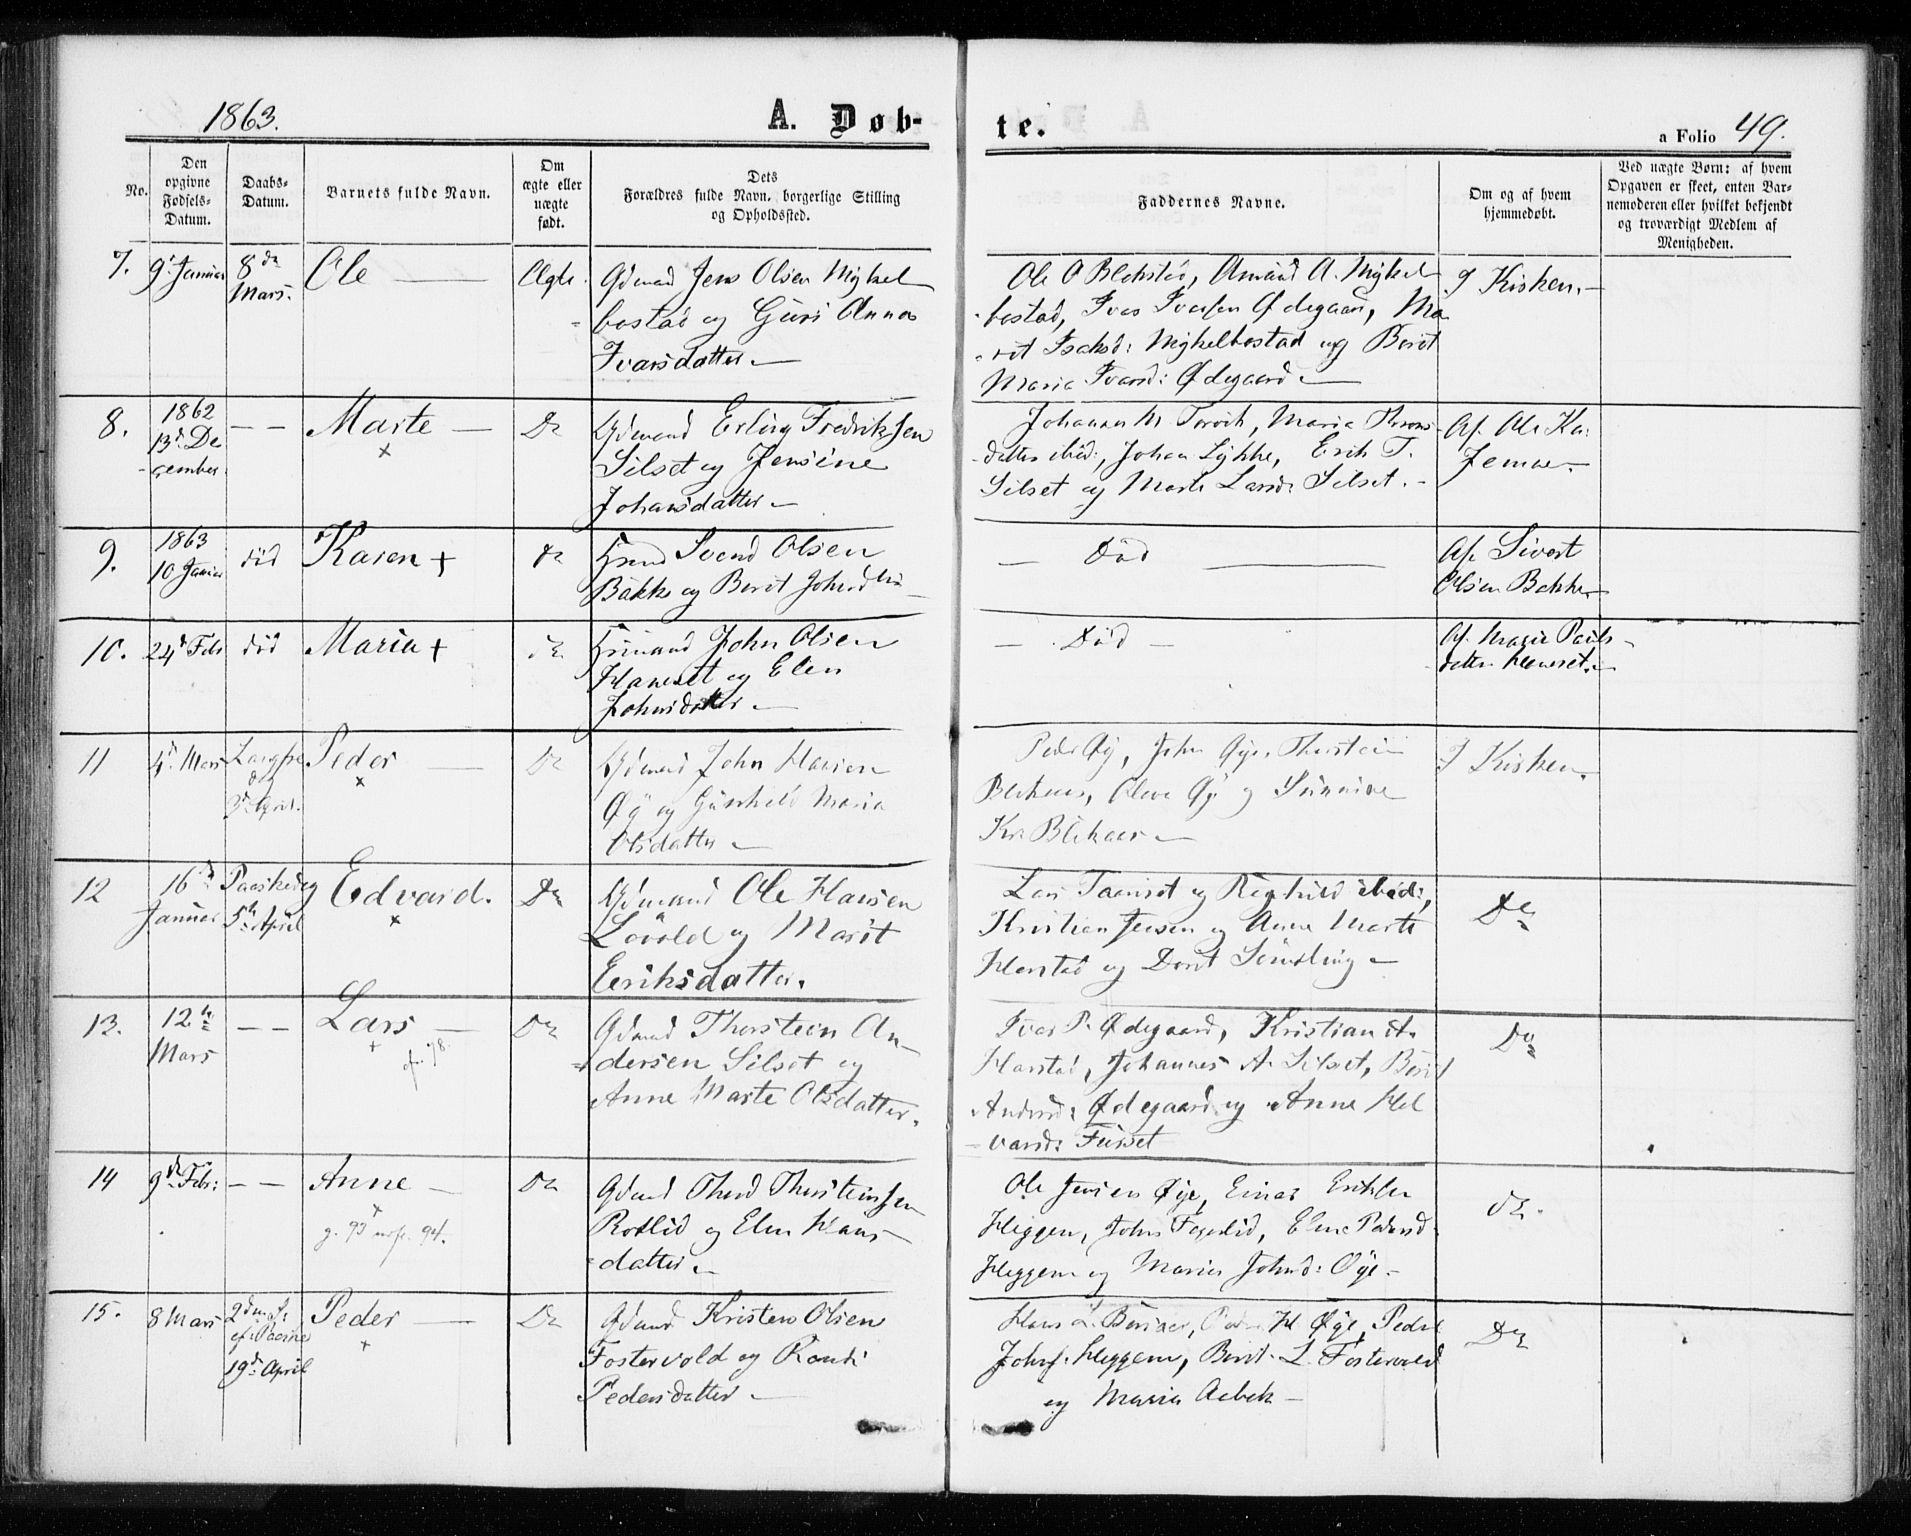 1863.
A. Døb-
te.
a Folio 49.
No.
Den
opgivne
Fødsels-
Datum.
Daabs-
Datum.
Barnets fulde Navn.
Om
ægte eller
uægte
født.
Dets
Forældres fulde Navn, borgerlige Stilling
og Opholdssted.
Faddernes Navne.
Om og af hvem
hjemmedøbt.
Ved uægte Børn: af hvem
Opgaven er skeet, enten Bar-
nemoderen eller hvilket bekjendt
og troværdigt Medlem af
Menigheden.
7.
9 Januar
8de
Mars.
Ole
Ægte
Gdmand Jens Olsen Mykel
bostad og Guri Anna
Ivarsdatter
Ole O Blekstad, Amund A. Mykel
bostad, Ivar Ivarsen Ødegaard, Ma
rit Isaksd: Mykelbostad og Berit
Maria Ivarsd: Ødegaard
I Kirken.
8.
1862
13de De
cember
- -
Marte
x
Do
Gdmand Erling Fredriksen
Silset og Jensine
Johansdatter
Johannes M. Maria
datter ibid:, Johan Lykke, Erik T.
Silset og Marte Larsd: Silset.
Af Ole
9.
1863
10 Januar
død
Karen +
do
Svend Olsen
Bakke og Berit
Død
Af Sivert
Olsen Bakke
10.
24d Febr
død
Maria +
do
John Olsen
og Elen
Johnsdatter
Død
Af Marie Pauls
datter
11
4d Mars
Langfre
dag
3d April.
Peder
x
Do
Gdmand John Hansen
Øy og Gunhild Maria
Olsdatter
Peder Øy, John Øye, Thorstein
Blekaas, Øye og Sunnive
Blekaas
I Kirken.
12
16d
Januar
Paaskedag
5te April
Edvard.
x
Do
Gdmand Ole Hansen
Løvold og Marit
Eeriksdatter.
Lars og Ragnhild ibid:,
Kristian Jensen og Anne Marte
Harstad og
Do
13.
12te
Mars
- -
Lars
+
Do
Gdmand Thorstein An
dersen Silset og
Anne Marte Olsdatter.
Ivar P. Ødegaard, Kristian A.
Harstad, Johannes A. Silset, Berit
Andersd: Ødegaard og Anne Hal
varsd: Fusset
Do
14
9de Febr:
- -
Anne
x
g. 93 94.
Do
Gdmand Thorsteinsen
Rotlid og Elen Hans
datter
Ole Jensen Øye, Einar Eriksen
Heggem, John Fagerlid, Elene Pedersd
Heggem og Maria Johnsd: Øye
do.
15.
8 Mars
2den S:
ef. Paaske
19de April
Peder
+
Do
Gdmand Kristen Olsen
Fostervold og Randi
Pedersdatter
Hans L. H. Øye, Peder
Johns: Heggem, Berit L. Fostervold
og Maria Aebek
Do